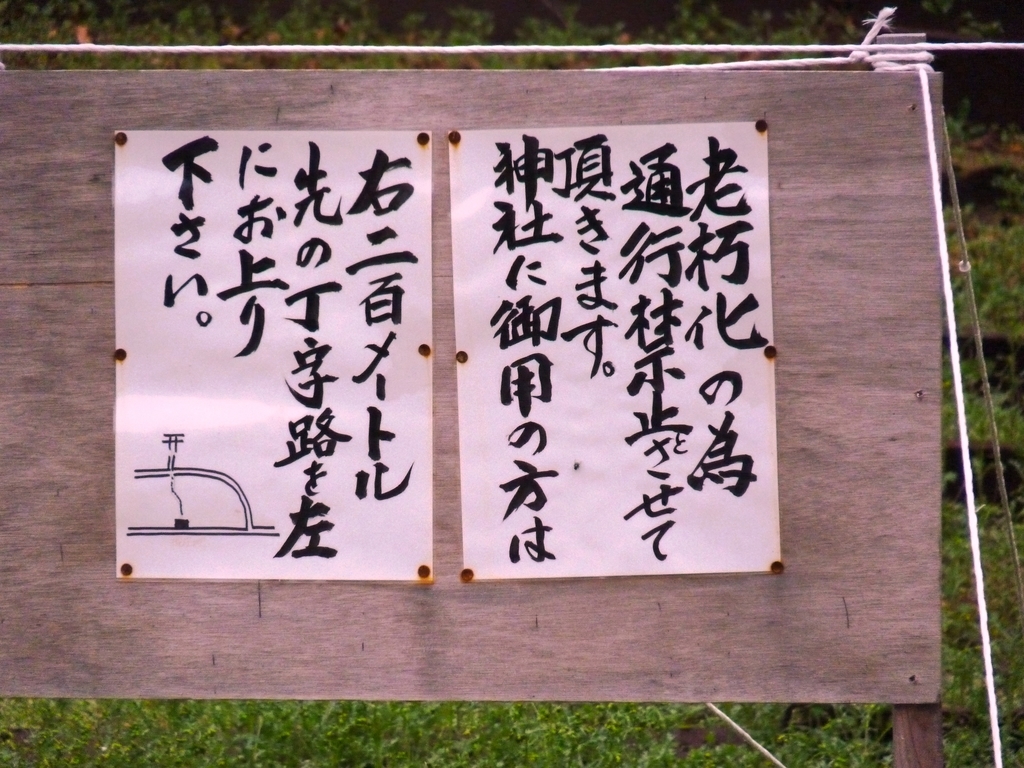 老朽化の為
通行禁止とさせて
頂きます。
神社に御用の方は
右二百メートル
先の丁字路を左
にお上り
下さい。